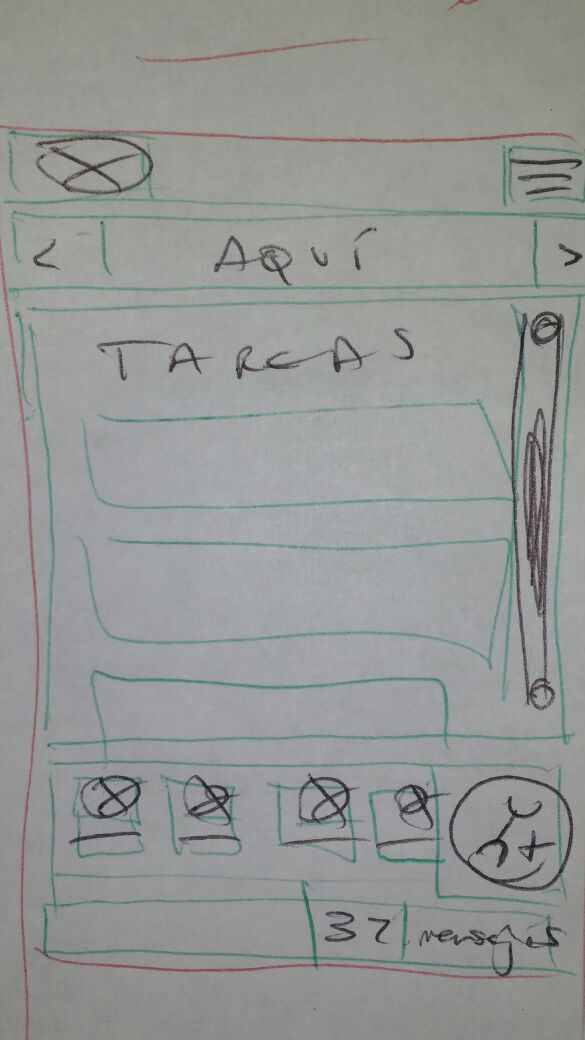 < AQUÍ >
TAREAS
37 mensajes